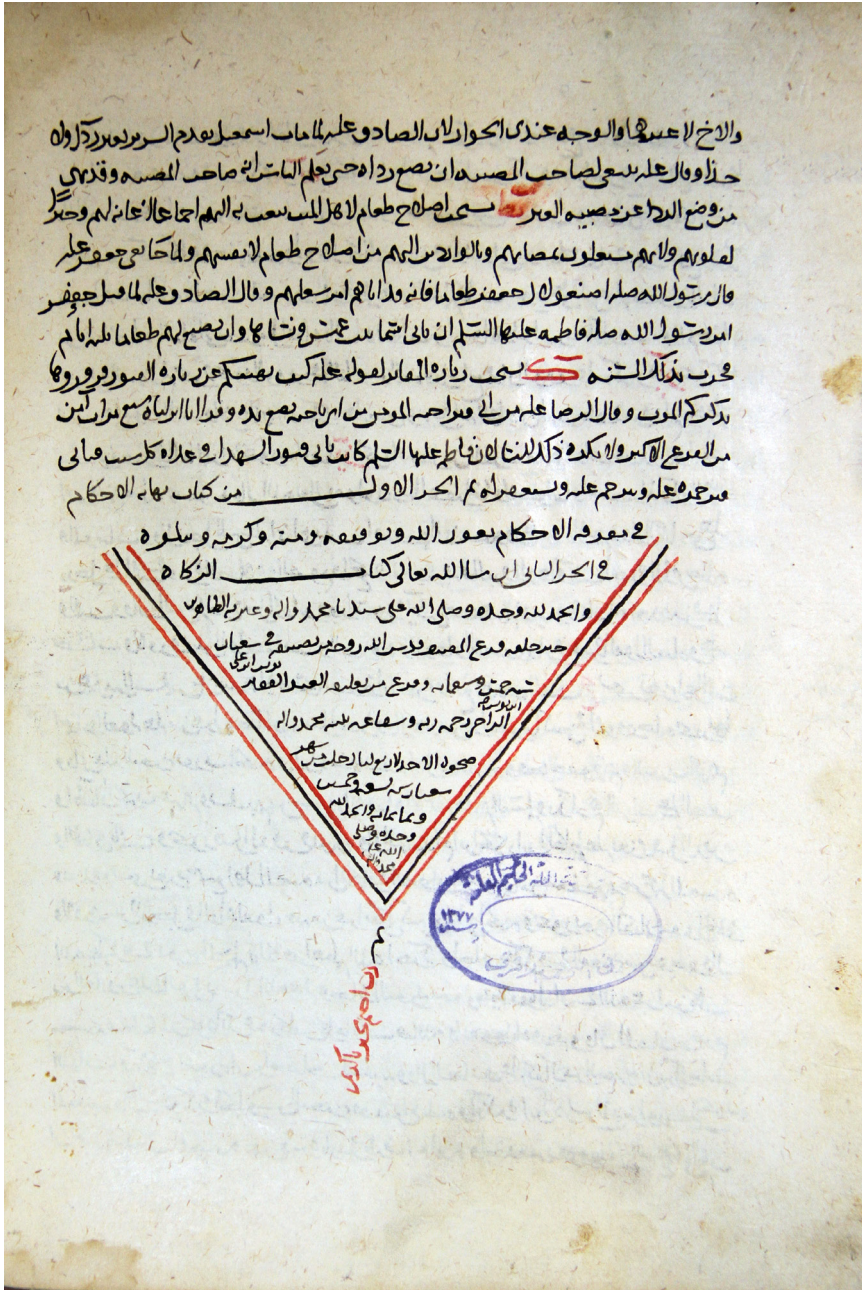 والاخ لا غيرهما والوجه عندي الجواز لان الصادق عليه لما مات اسمعيل تقدم السرير بغير رداء ولا
حذاء وقال عليه ينبغي لصاحب المصيبه ان يضع رداه حتى يعلم الناس انه صاحب المصيبه وقد نهى
من وضع الردا عن مصيبه الغير يستحب اصلاح طعام لاهل الميت يبعث به اليهم اجماعا اعانه لهم وجبرا
لقلوبهم ولانهم مشغلون بمصابهم وبالواردين اليهم من اصلاح طعام لانفسهم ولما جا نعي جعفر عليه
قال رسول الله صله اصنعوا لال جعفر طعاما فانه قد اتاهم امر شغلهم وقال الصادق عليه لما قتل جعفر
امر رسول الله صله فاطمه عليها السلم ان تاتي اسما بنت عميس ونساها وان يصنع لهم طعاما ثلثه ايام
فجرت بذلك السنه يستحب زياره المقابر لقوله عليه كنت نهيتكم عن زياره القبور فزوروها
تذكركم الموت وقال الرضا عليه من اتى قبر اخيه المومن من اي ناحيه يضع يده وقرا انا انزلناه سبع مرات امن
من الفزع الاكبر ولا يكره ذلك للنسا لان فاطمه عليها السلم كانت تاتي قبور الشهدا في غداه كل سبت فتاتي
قبر حمزه عليه وتترحم عليه وتستغفر له تم الجز الاول من كتاب نهايه الاحكام
في معرفه الاحكام بعون الله وتوفيقه ومنه وكرمه ويتلوه
في الجز الثاني ان شا الله تعالى كتاب الزكاه
والحمد لله وحده وصلى الله على سيدنا محمد واله وعترته الطاهرين
فرغ المصنف قدس الله روحه من تصنيفه في شعبان
سنه خمس وسبعمايه وفرغ من تعليقه العبد الفقير
الراجي رحمه ربه وشفاعه نبيه محمد واله
ضحوه الاحد لاربع ليال خلت من شهر
شعبان سنه تسعه وخمسين
وثمانمائه والحمد لله
وحده وصلى
الله على
محمد واله
١٣٧٧